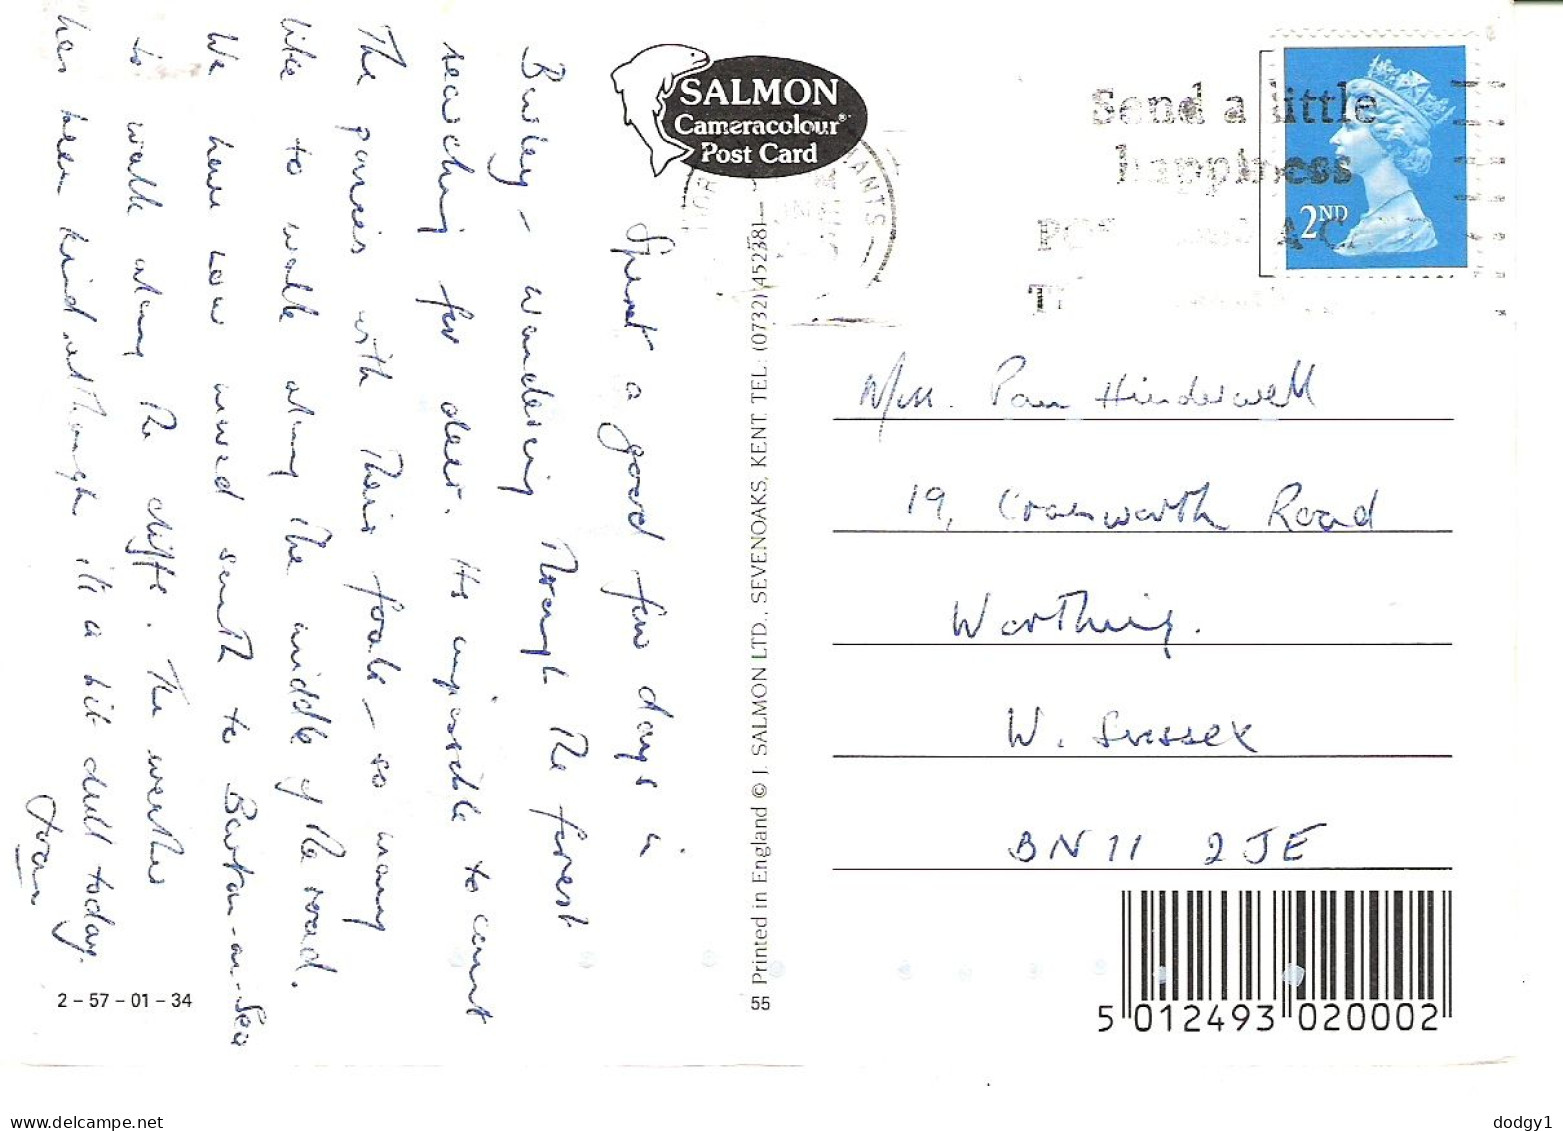 Spent a good few days in
Burley – wandering through the forest
searching for deer. Its impossible to count
The ponies with their foals – so many
like to walk along the middle of the road.
We have now moved south to Barton-on-Sea
to walk along the cliffs. The weather
has been kind although its a bit dull today.
Joan
2 – 57 – 01 – 34
SALMON
Cameracolour®
Post Card
Printed in England © J. SALMON LTD., SEVENOAKS, KENT. TEL: (0732) 452381
55
Send a little
happiness
POST A CA
T
ANTS
2ND
Miss. Pam Hinderwell
19, Cranworth Road
Worthing.
W. Sussex
BN11 2JE
5 012493 020002
www.delcampe.net
dodgy1